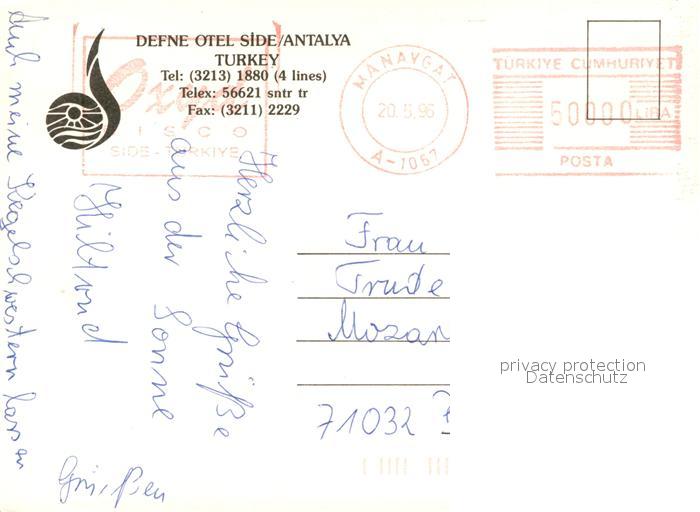 DEFNE OTEL SİDE/ANTALYA
TURKEY
Tel: (3213) 1880 (4 lines)
Telex: 56621 sntr tr
Fax: (3211) 2229
ISCO
SIDE - TÜRKIYE
MANAVGAT
20.5.96
A-1067
TÜRKİYE CUMHURİYETİ
50000 LİRA
POSTA
Herzliche Grüße
aus der Sonne
Hiltrud
Auch meine Kegelschwestern lassen
Grüßen
Frau
Trude
Mozar
71032 B
privacy protection
Datenschutz